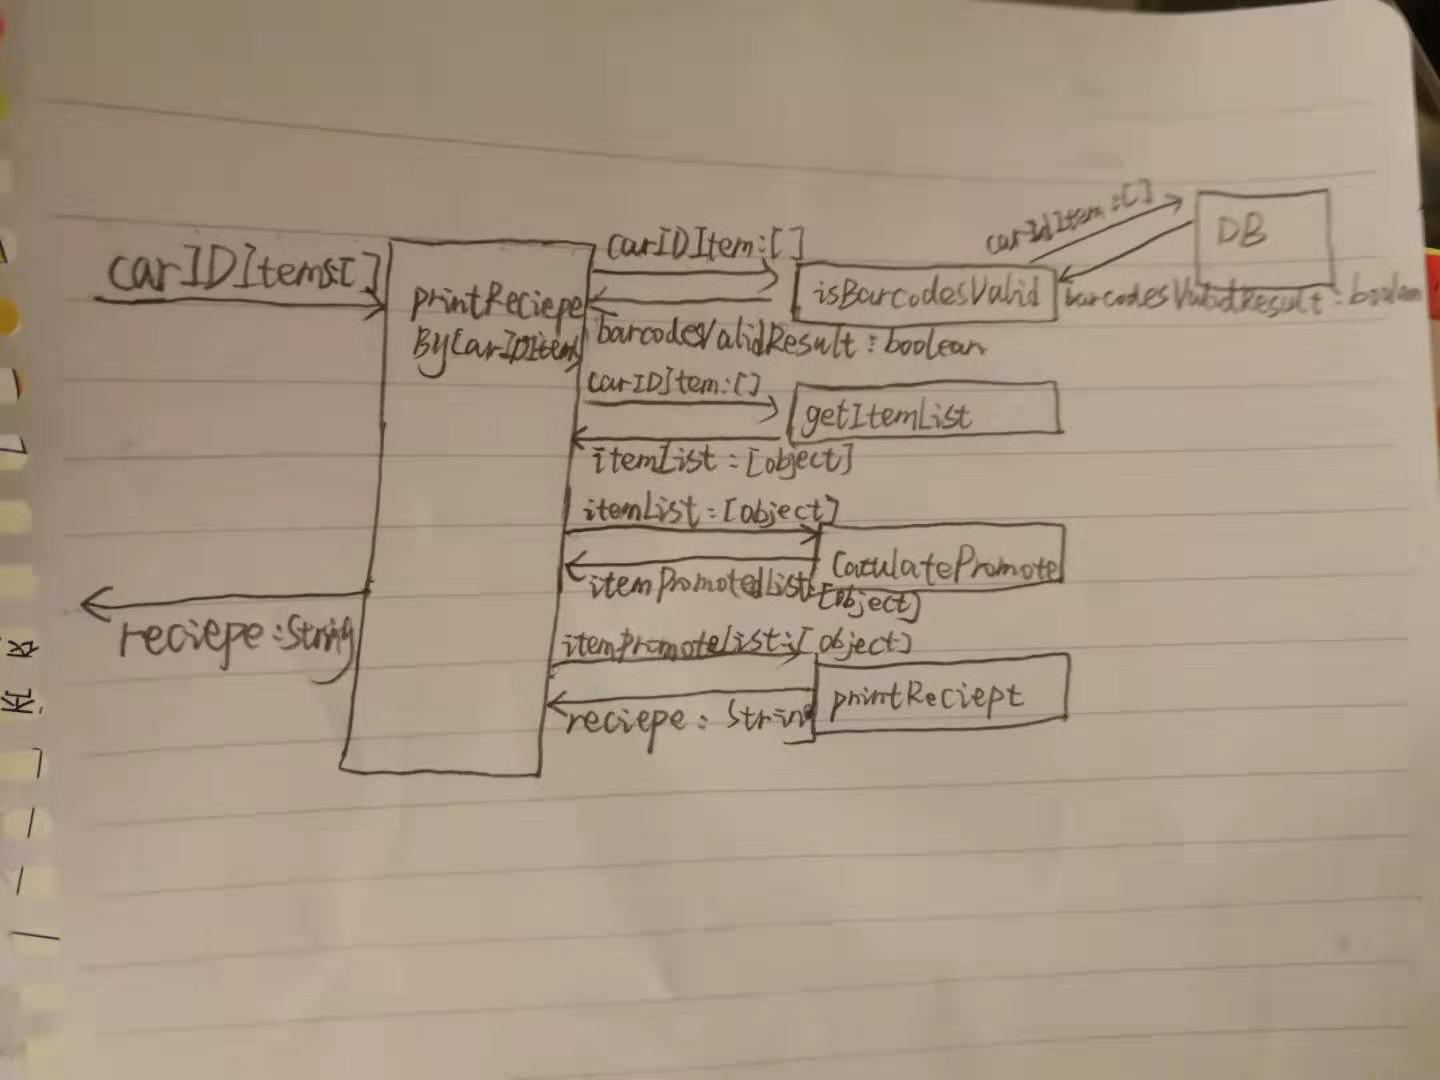 carIDItems:[]
printReciepe
ByCarIDItems
carIDItem:[]
isBarcodesValid
barcodesValidResult:boolean
carIdItem:[]
DB
barcodesValidResult:boolean
carIDItem:[]
getItemList
itemList:[object]
itemList:[object]
CaculatePromote
itemPromotedList:
[object]
itemPromoteList:[object]
printReciept
reciepe:String
reciepe:String